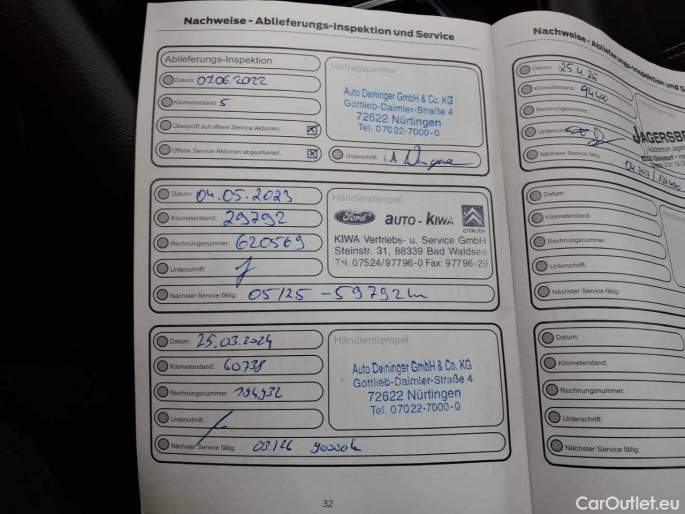 Nachweise - Ablieferungs-Inspektion und Service
Ablieferungs-Inspektion
Datum: 07.06.2022
Kilometerstand: 5
Überprüft auf offene Service Aktionen:
Offene Service Aktionen abgearbeitet:
Vertragspartner
Auto Deininger GmbH & Co. KG
Gottlieb-Daimler-Straße 4
72622 Nürtingen
Tel. 07022-7000-0
Unterschrift:
Datum: 04.05.2023
Kilometerstand: 29792
Rechnungsnummer: 620569
Unterschrift:
Nächster Service fällig: 05/25 - 59792km
Händlerstempel
Ford AUTO - KIWA CITROËN
KIWA Vertriebs- u. Service GmbH
Steinstr. 31, 88339 Bad Waldsee
Tel. 07524/97796-0 Fax: 97796-29
Datum: 25.03.2024
Kilometerstand: 60738
Rechnungsnummer: 194932
Unterschrift:
Nächster Service fällig: 03/26 90000k
Händlerstempel
Auto Deininger GmbH & Co. KG
Gottlieb-Daimler-Straße 4
72622 Nürtingen
Tel. 07022-7000-0
32
Nachweise - Ablieferungs-Inspektion und S
Datum:
Kilometerstand: 94400
Rechnungsnummer:
Unterschrift:
Nächster Service fällig:
Datum:
Kilometerstand:
Rechnungsnummer:
Unterschrift:
Nächster Service fällig:
Datum:
Kilometerstand:
Rechnungsnummer:
Unterschrift:
Nächster Service fällig:
CarOutlet.eu